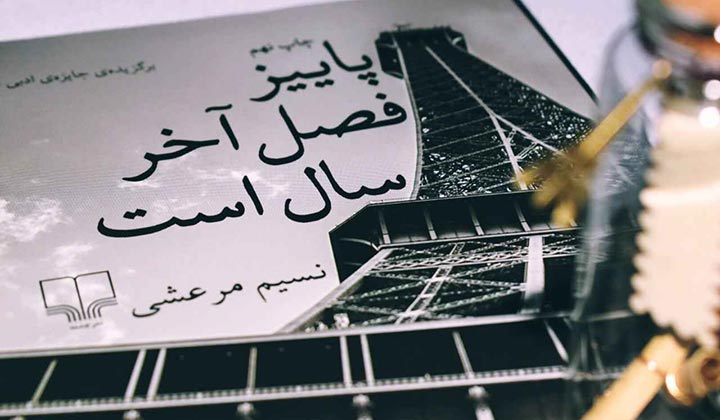 چاپ نهم
برگزیده‌ی جایزه‌ی ادبی
پاییز
فصل آخر
سال است
نسیم مرعشی
نشر چشمه